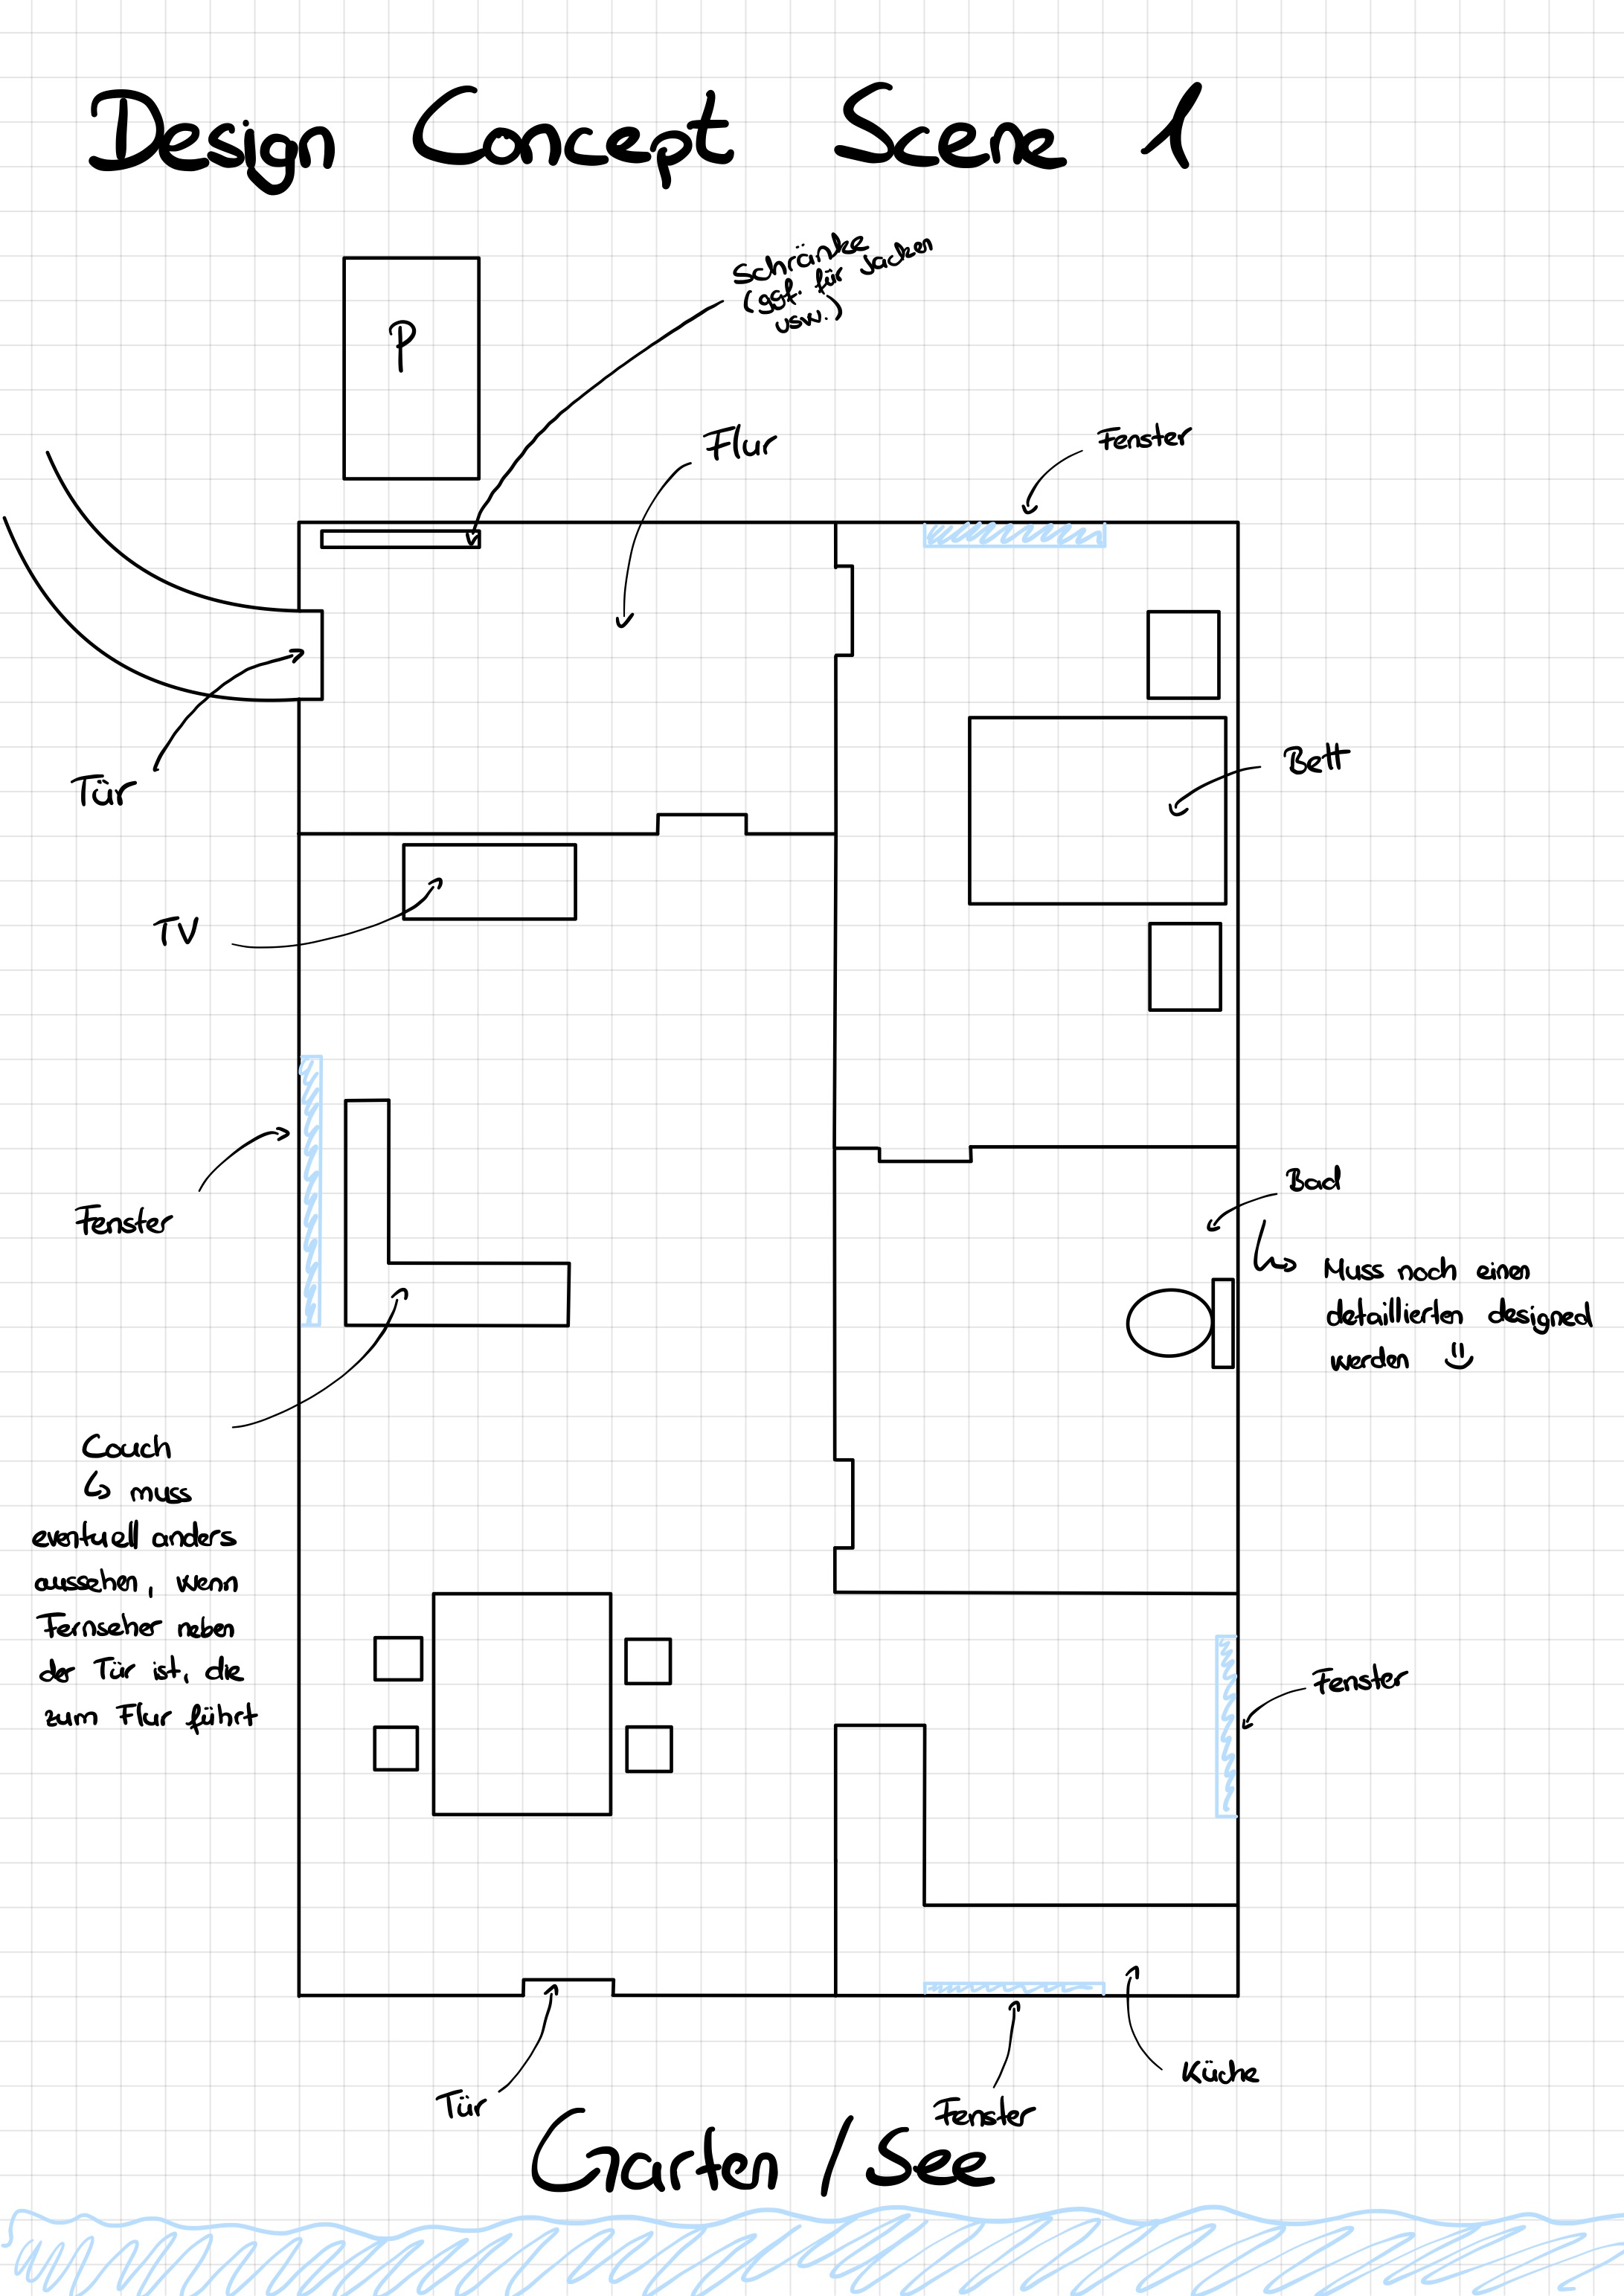 Design Concept Scene 1
Schränke
(ggf. für Jacken
usw.)
P
Flur
Fenster
Tür
Bett
TV
Fenster
Bad
↳ Muss noch einen
detaillierten designed
werden
Couch
↳ muss
eventuell anders
aussehen, wenn
Fernseher neben
der Tür ist, die
zum Flur führt
Fenster
Küche
Tür
Fenster
Garten / See